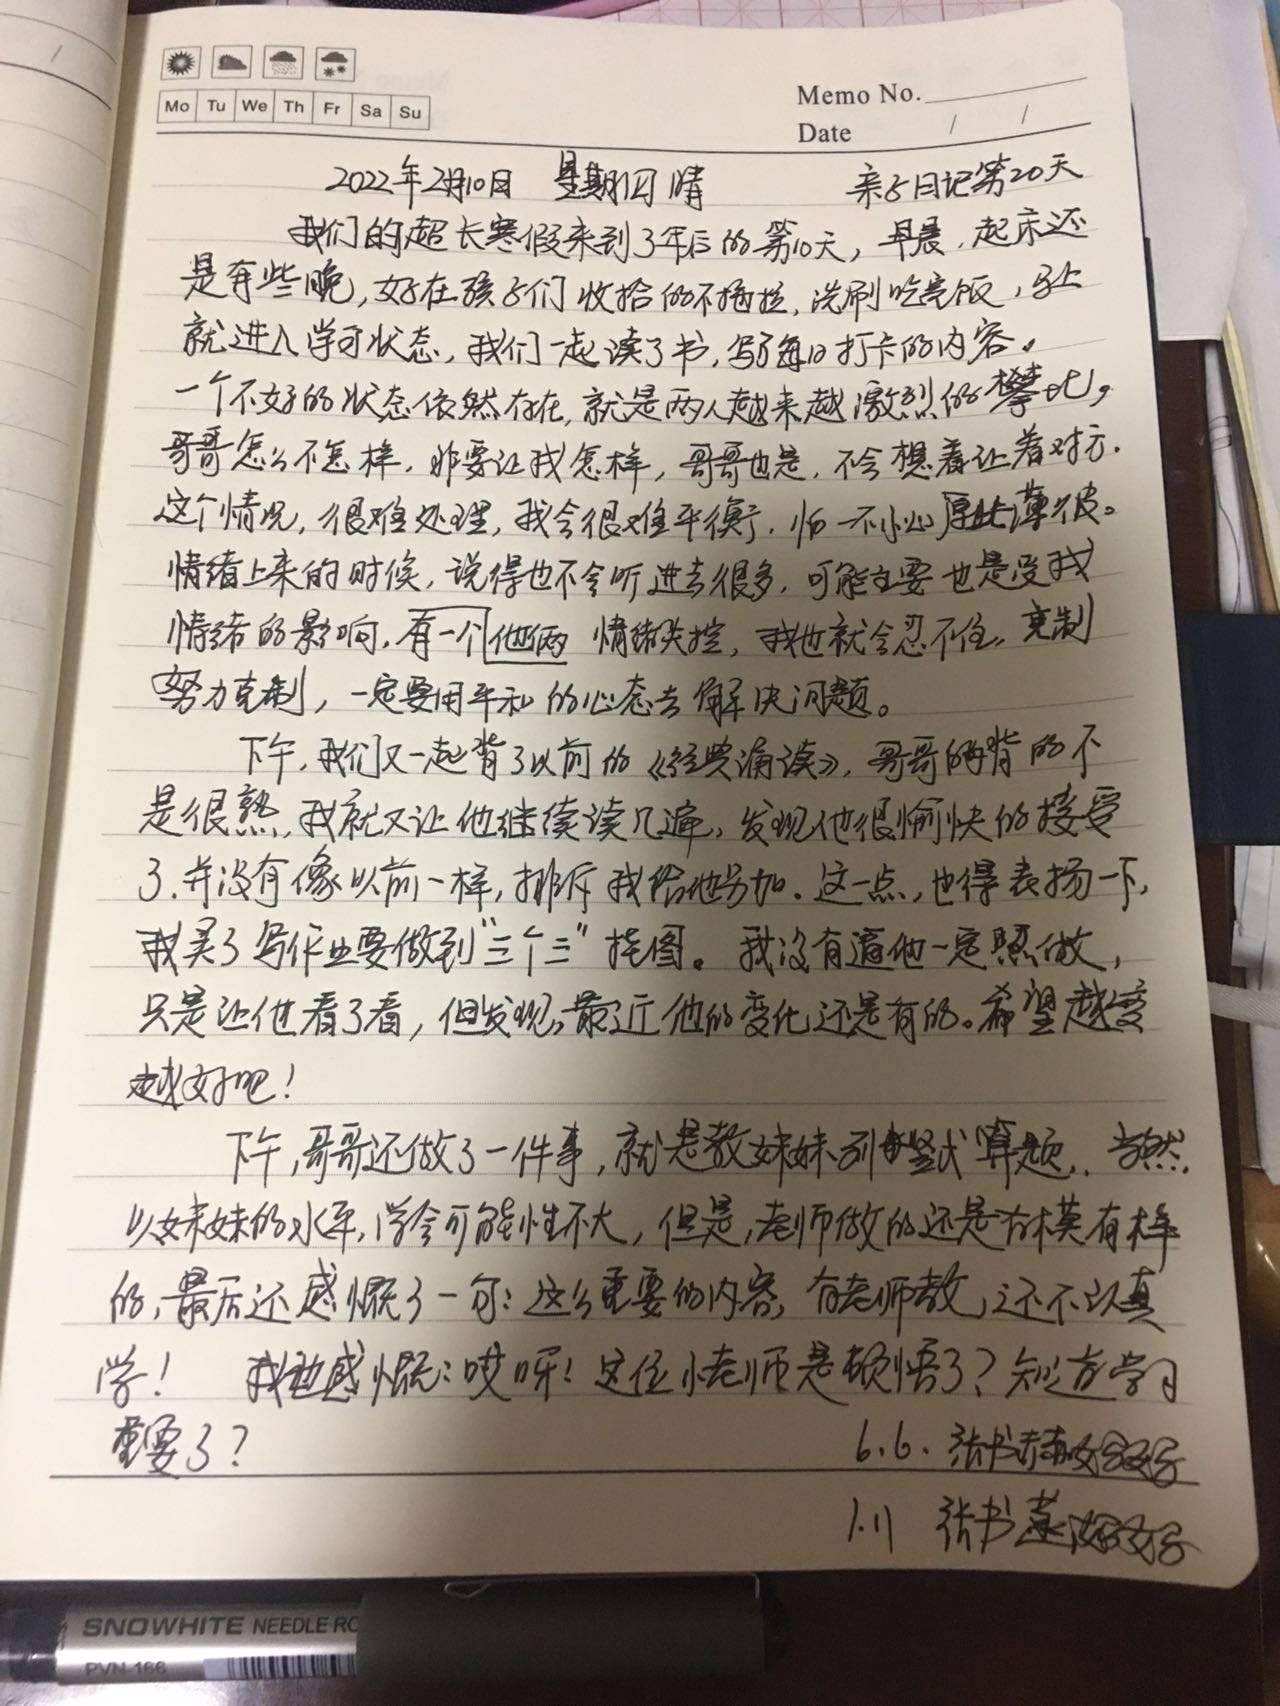 Mo Tu We Th Fr Sa Su
Memo No.
Date / /
2022年2月10日 星期四 晴 亲子日记第20天
我们的超长寒假来到了年后的第10天，早晨，起床还
是有些晚，好在孩子们收拾的不拖拉，洗刷吃完饭，马上
就进入学习状态，我们一起读了书，写了每日打卡的内容。
一个不好的状态依然存在，就是两人越来越激烈的攀比，
哥哥怎么不怎样，非要让我怎样，哥哥也是，不会想着让着对方.
这个情况，很难处理，我会很难平衡，怕一不小心厚此薄彼。
情绪上来的时候，说得也不会听进去很多，可能主要也是受我
情绪的影响，有一个他俩情绪失控，我也就会忍不住。克制
努力克制，一定要用平和的心态去解决问题。
下午，我们又一起背了以前的《经典诵读》，哥哥的背的不
是很熟，我就又让他继续读几遍，发现他很愉快的接受
了.并没有像以前一样，排斥我给他另加. 这一点，也得表扬一下，
我买了写作业要做到“三个三”挂图。我没有逼他一定照做，
只是让他看了看，但发现，最近他的变化还是有的。希望越变
越好吧！
下午，哥哥还做了一件事，就是教妹妹列竖式算题，当然，
以妹妹的水平，学会可能性不大，但是，老师做的还是有模有样
的，最后还感慨了一句：这么重要的内容，有老师教，还不认真
学！ 我也感慨：哎呀！这位小老师是顿悟了？知道学习
重要了？
6.6. 张书赫
1.11 张书
SNOWHITE NEEDLE RO
PVN-166